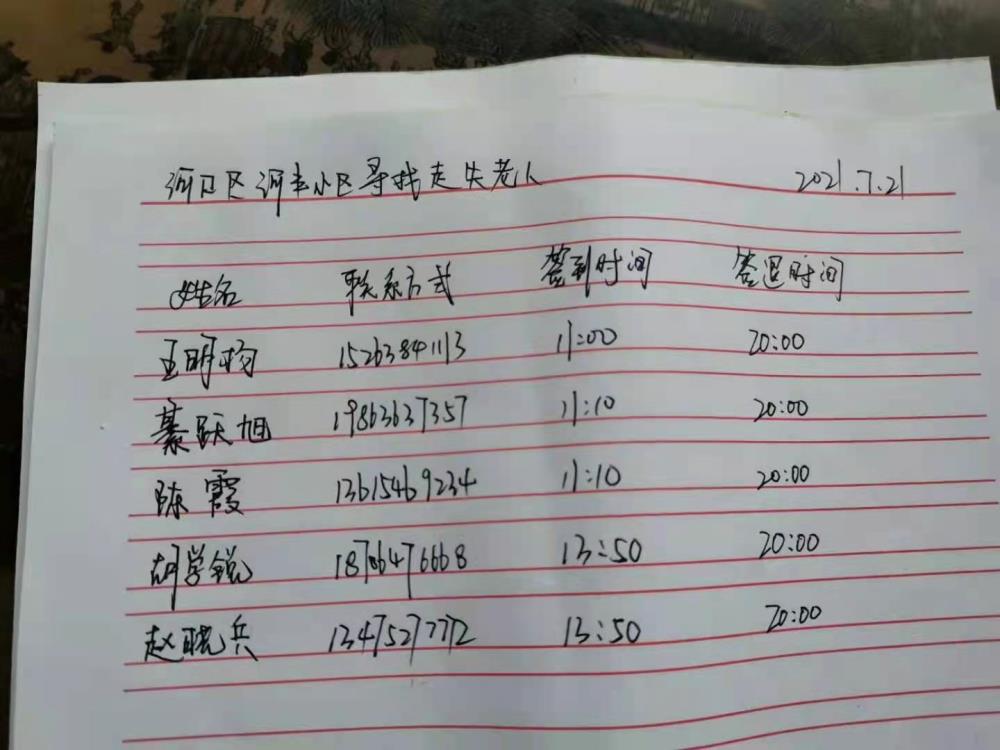 河口区河丰小区寻找走失老人 2021.7.21
姓名 联系方式 签到时间 签退时间
王明均 15263841113 11:00 20:00
綦跃旭 19863637357 11:10 20:00
陈霞 13615469234 11:10 20:00
胡学锐 18706476668 13:50 20:00
赵晓兵 13475277772 13:50 20:00